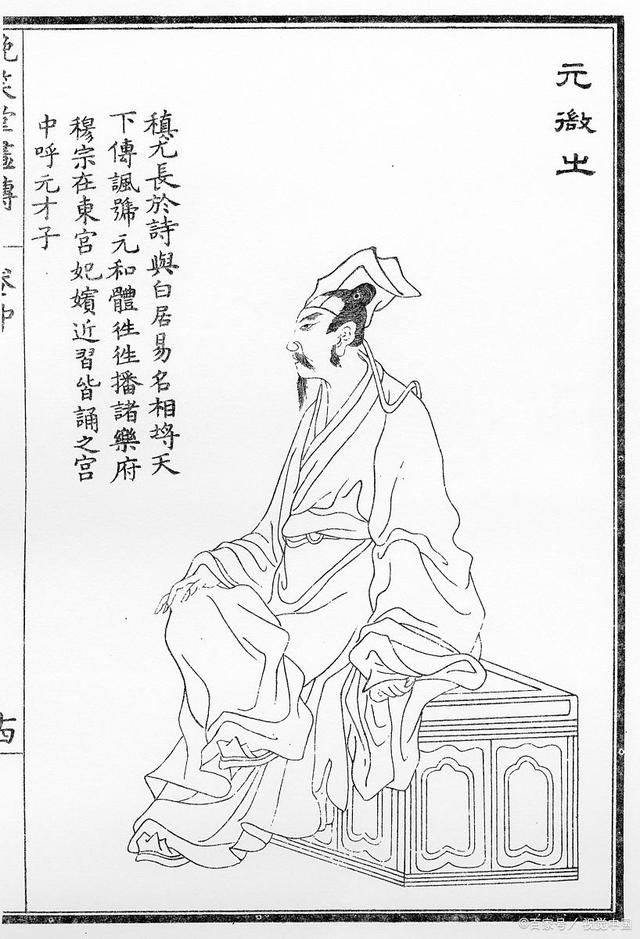 元微之
稹尤長於詩與白居易名相埒天
下傳諷號元和體徃徃播諸樂府
穆宗在東宮妃嬪近習皆誦之宮
中呼元才子
晚笑堂畫傳
卷中
©百家号／视觉中国